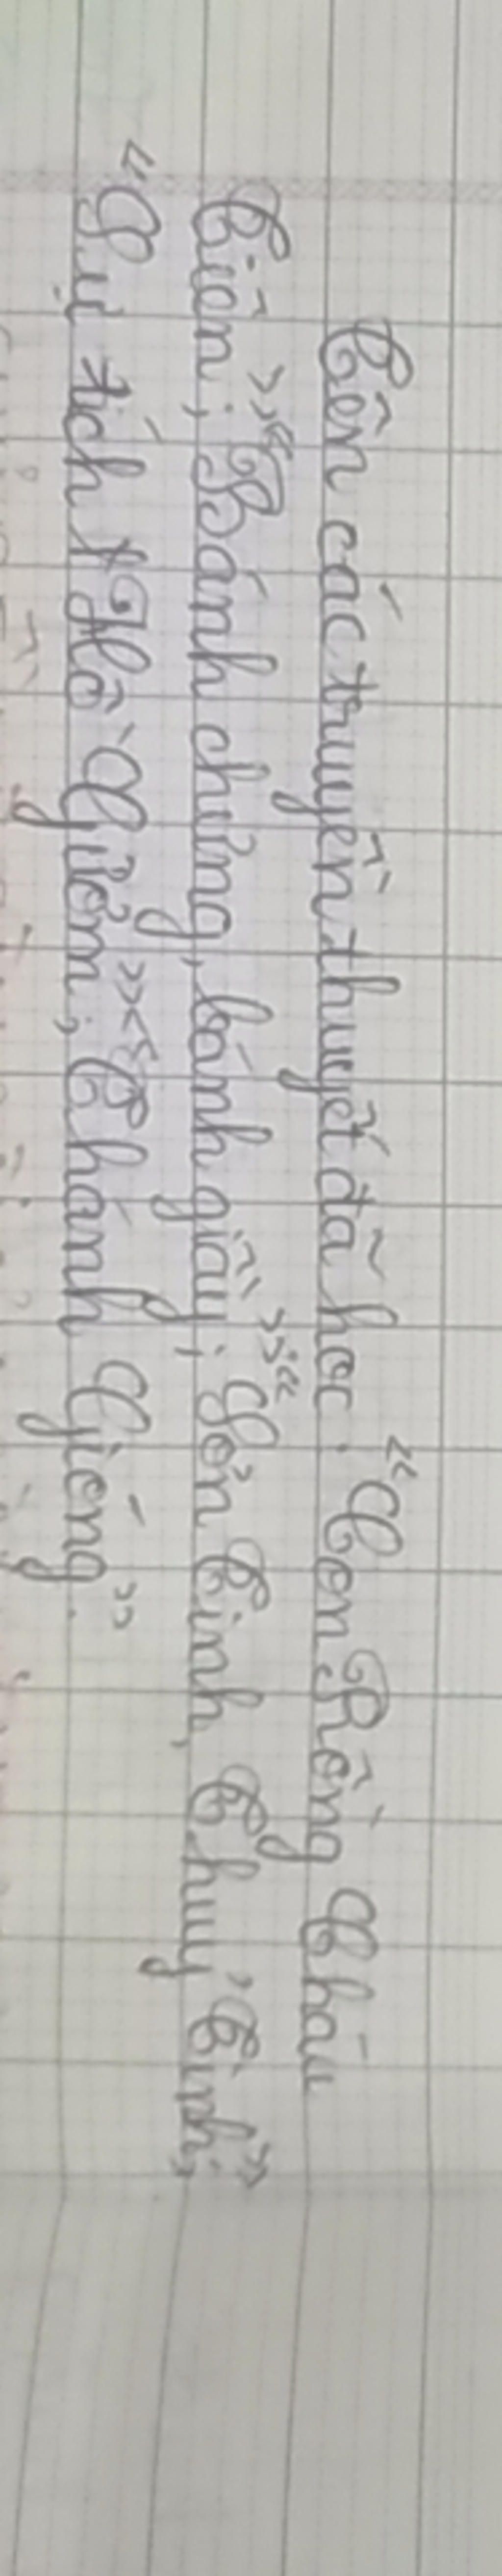 Tên các truyền thuyết đã học: "Con Rồng Cháu
Tiên"; "Bánh chưng, bánh giầy"; "Sơn Tinh, Thuỷ Tinh";
"Sự tích Hồ Gươm"; "Thánh Gióng".